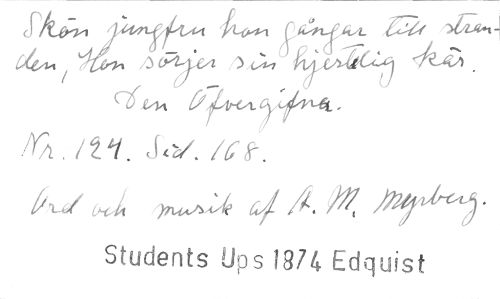 Skön jungfru hon gångar till stran-
den, Hon sörjer sin hjertelig kär.
Den Öfvergifna.
Nr. 124. Sid. 168.
Ord och musik af A. M. Myrberg.
Students Ups 1874 Edquist